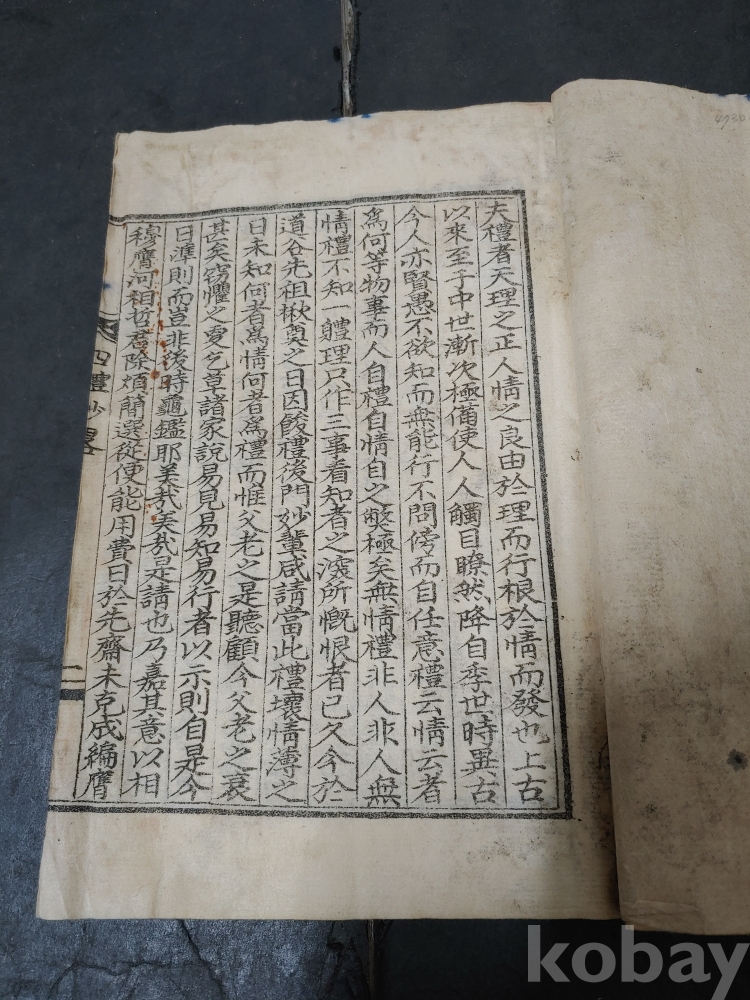 夫禮者天理之正人情之良由於理而行根於情而發也上古
以來至于中世漸次極備使人人觸目瞭然降自季世時異古
今人亦賢愚不欲知而無能行不問傍而自任意禮云情云者
爲何等物事而人自禮自情自之弊極矣無情禮非人非人無
情禮不知一軆理只作三事看知者之深所慨恨者已久今於
道谷先祖楸奠之日因餕禮後門妙輩咸請當此禮壞情薄之
日未知何者爲情何者爲禮而惟父老之是聽顧今父老之衰
甚矣窃懼之更乞草諸家說易見易知易行者以示則自是今
日準則而豈非後時龜鑑耶美哉美哉是請也乃嘉其意以相
穆膺河相哲君除煩簡選從便能用費日於先齋未克成編膺
四禮抄畧
二
4930
kobay